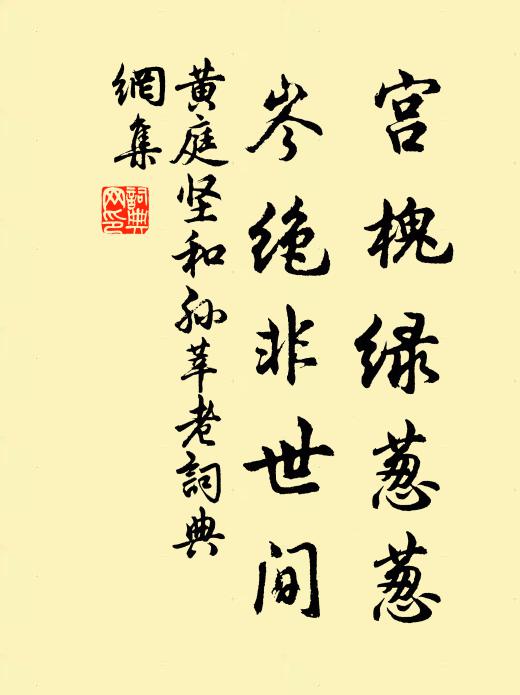 宫槐绿葱葱
岑绝非世间
黄庭坚和孙莘老詞典
網集
詞典网印